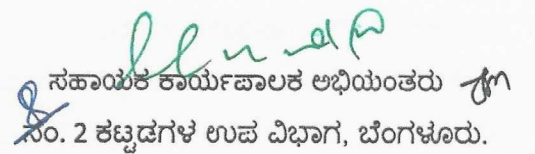 ಸಹಾಯಕ ಕಾರ್ಯಪಾಲಕ ಅಭಿಯಂತರು
ನಂ. 2 ಕಟ್ಟಡಗಳ ಉಪ ವಿಭಾಗ, ಬೆಂಗಳೂರು.